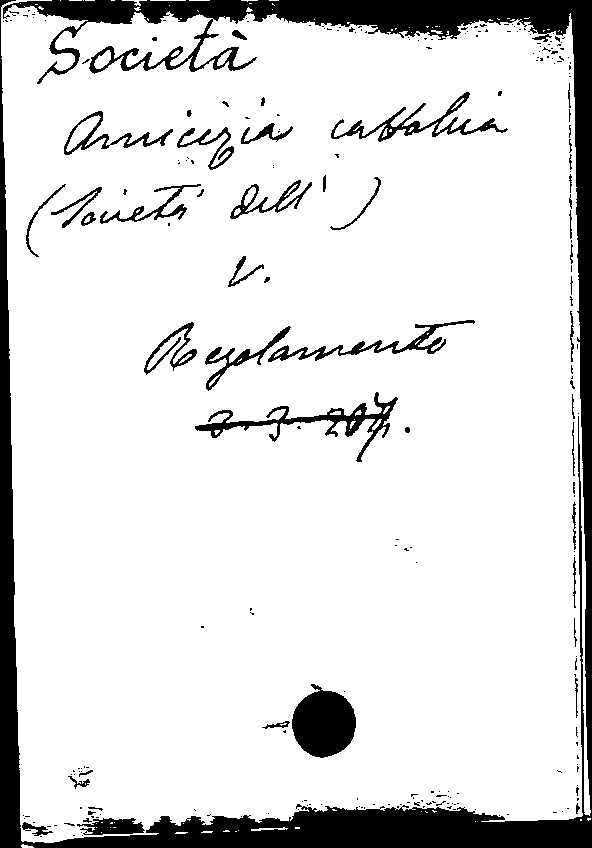 Società
Amicizia cattolica
(Società dell')
V.
Regolamento
3.3.207.